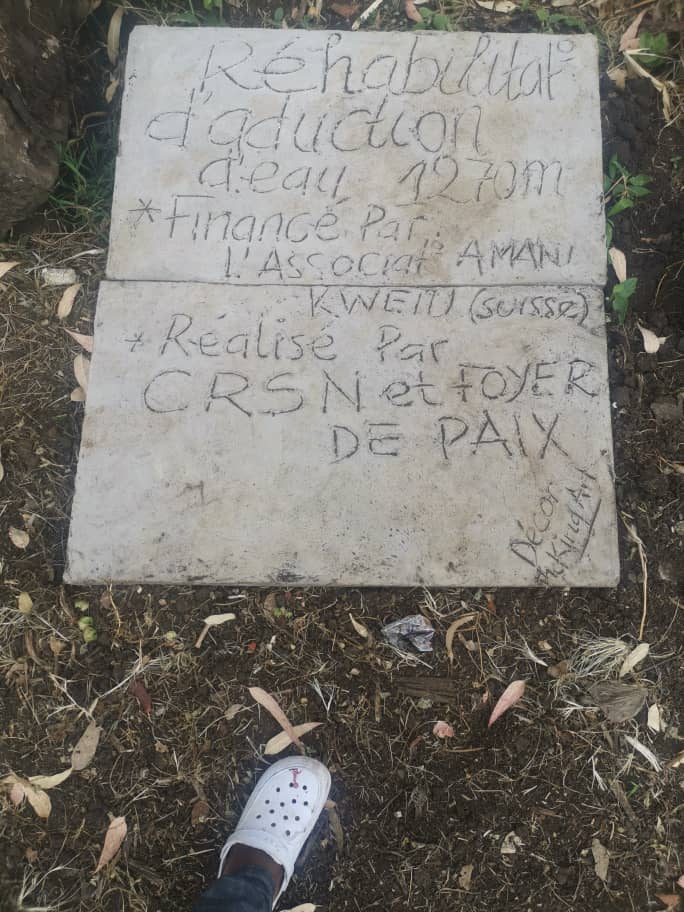 Réhabilitat°
d'aduction
d'eau 1270m
*Financé Par.
L'Associat° AMANI
KWETU (suisse)
* Réalisé Par
CRSN et FOYER
DE PAIX
Décor
King Art